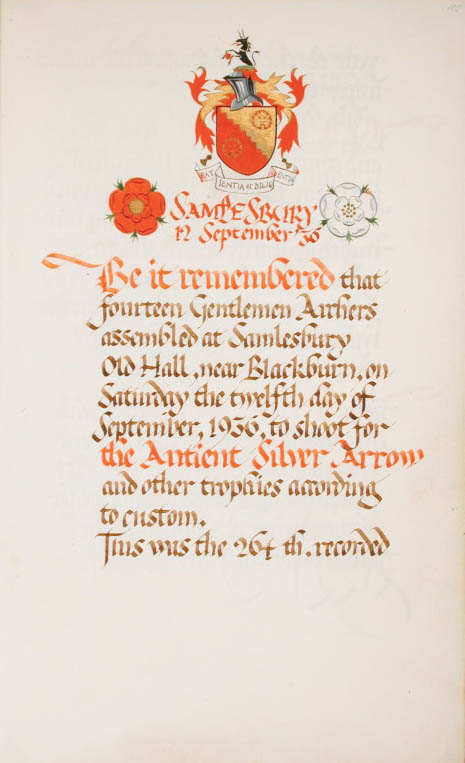 PAT IENTIA ET DILIG ENTIA
SAMLESBURY
12 September '36
Be it remembered that
fourteen Gentlemen Archers
assembled at Samlesbury
Old Hall, near Blackburn, on
Saturday the twelfth day of
September, 1936, to shoot for
the Antient Silver Arrow
and other trophies according
to custom.
This was the 264 th. recorded